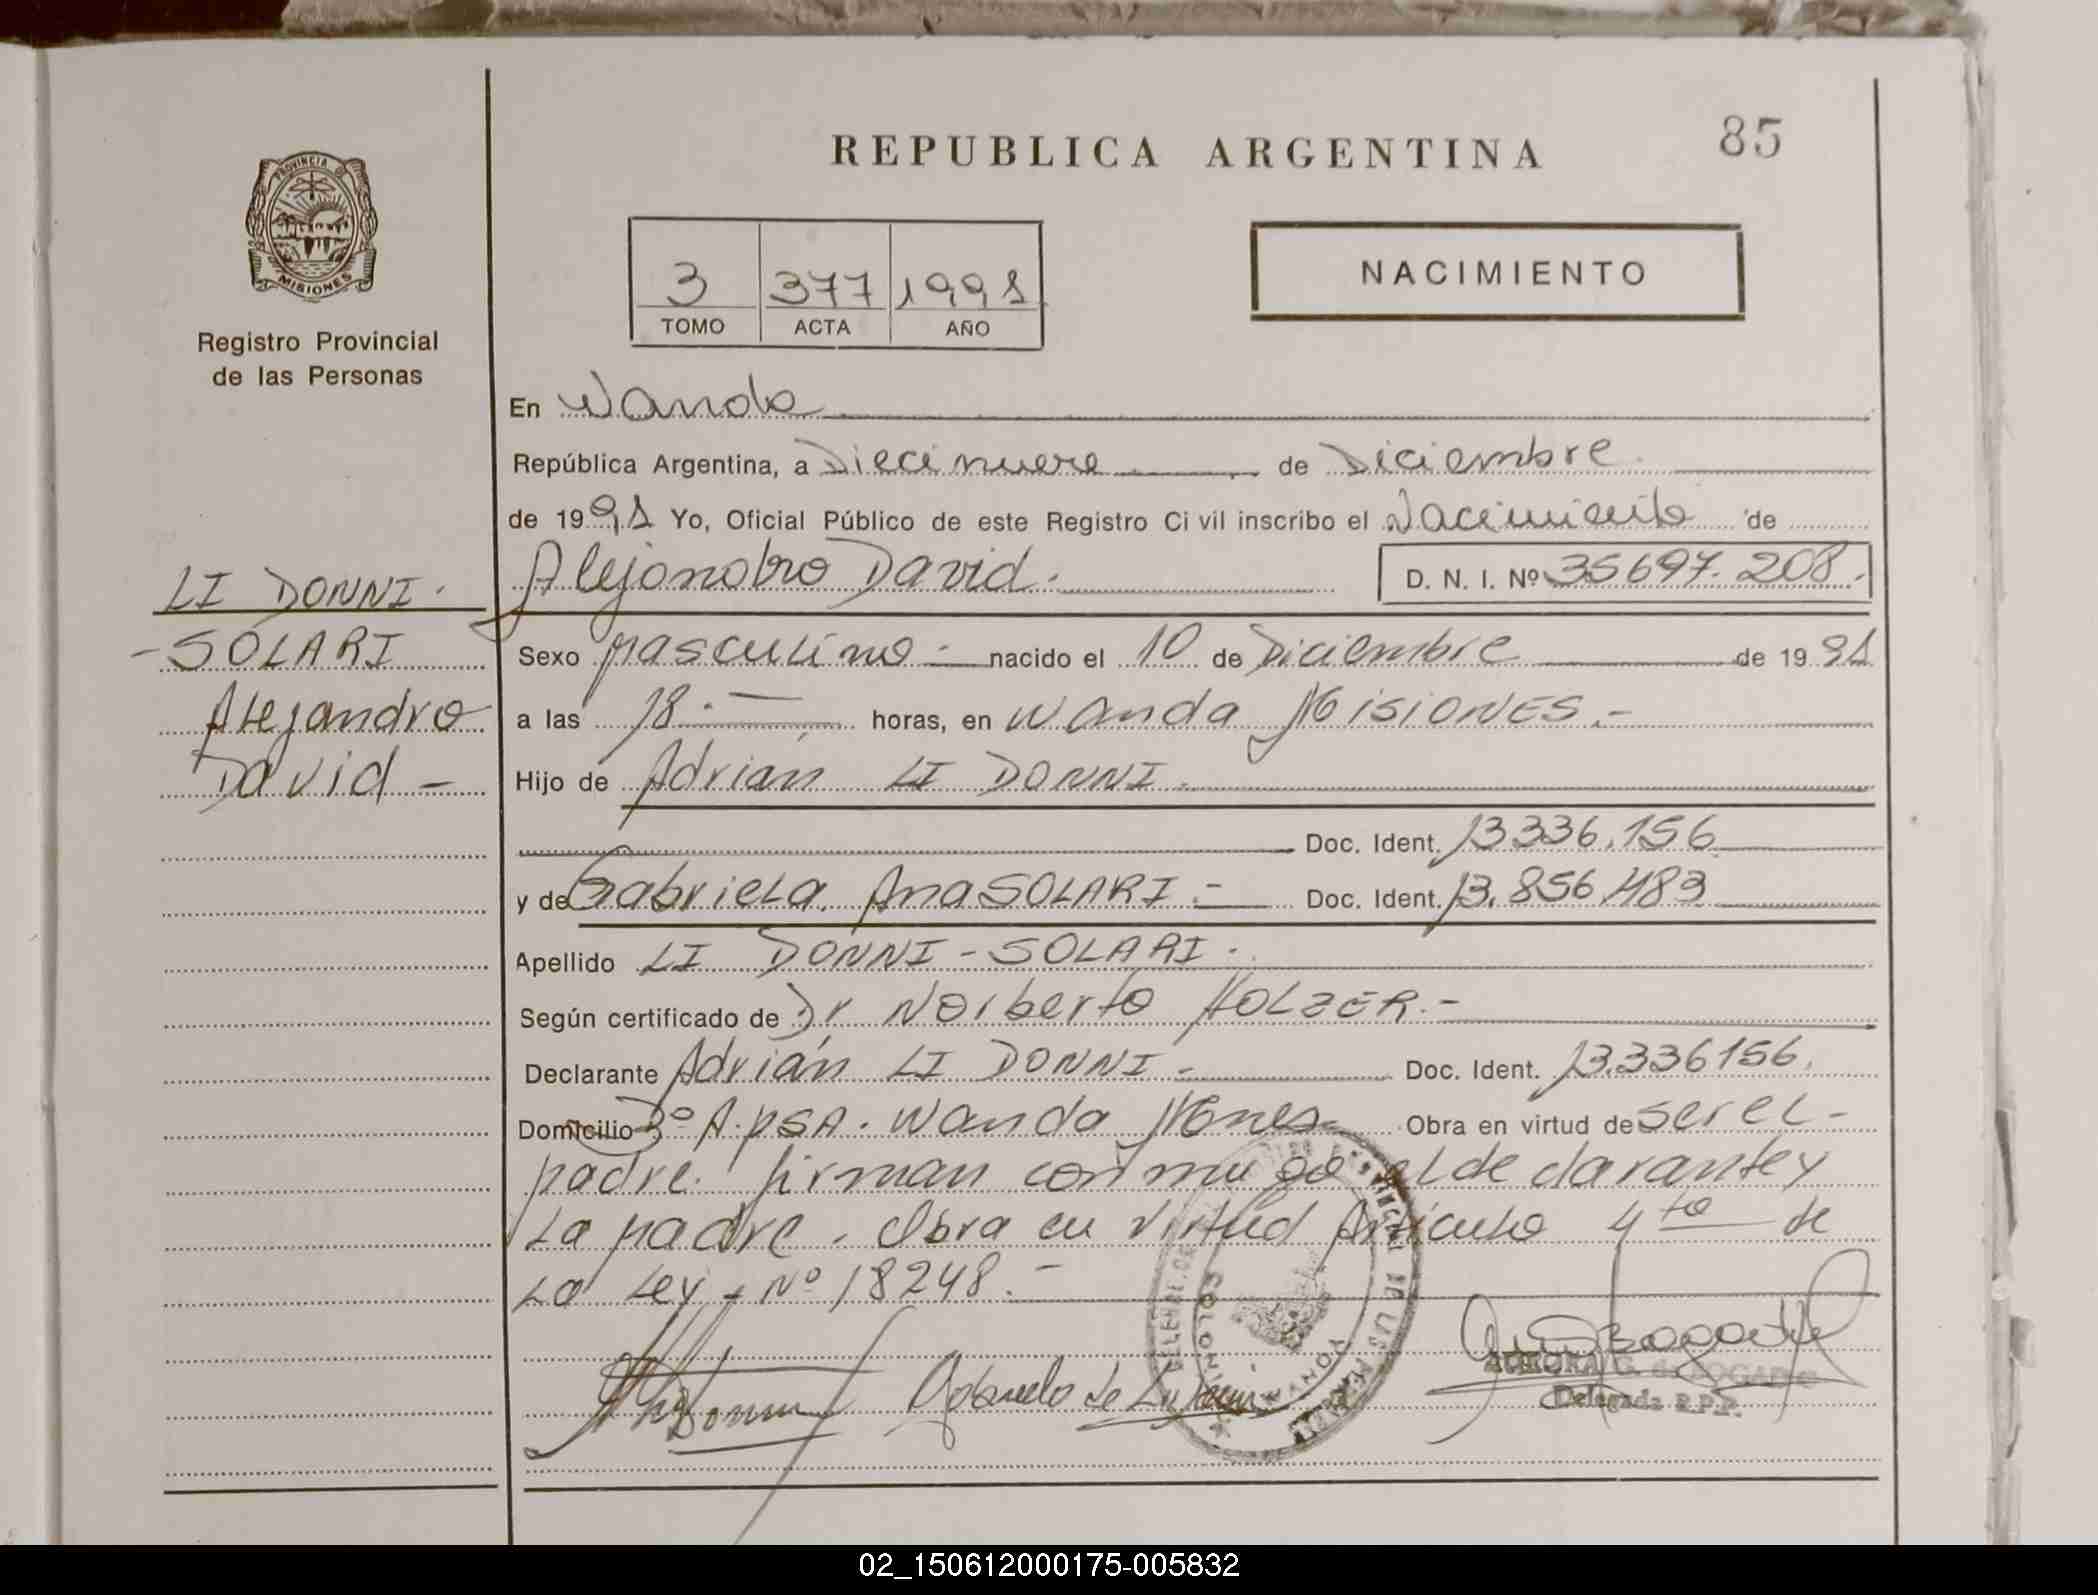 85
REPUBLICA ARGENTINA
PROVINCIA DE
MISIONES
Registro Provincial
de las Personas
3 377 1991
TOMO ACTA AÑO
NACIMIENTO
En Wanda
República Argentina, a Diecinueve de Diciembre
de 1991 Yo, Oficial Público de este Registro Civil inscribo el Nacimiento de
Alejandro David. D. N. I. Nº 35697.208.
LI DONNI.
-SOLARI
Alejandro
David -
Sexo masculino - nacido el 10 de Diciembre de 1991
a las 18.- horas, en Wanda Misiones.-
Hijo de Adrián LI DONNI.
Doc. Ident. 13336.156
y de Gabriela Ana SOLARI.- Doc. Ident. 13.856.483
Apellido LI DONNI - SOLARI.
Según certificado de Dr Norberto HOLZER.-
Declarante Adrián LI DONNI - Doc. Ident. 13.336156.
Domicilio Bº A.PSA. Wanda Mnes Obra en virtud de ser el
padre. firman conmigo el declarante y
la madre. Obra en virtud Artículo 4to de
la Ley Nº 18248.-
Gabriela de Li Donni
Delegada R.P.P.
02_150612000175-005832